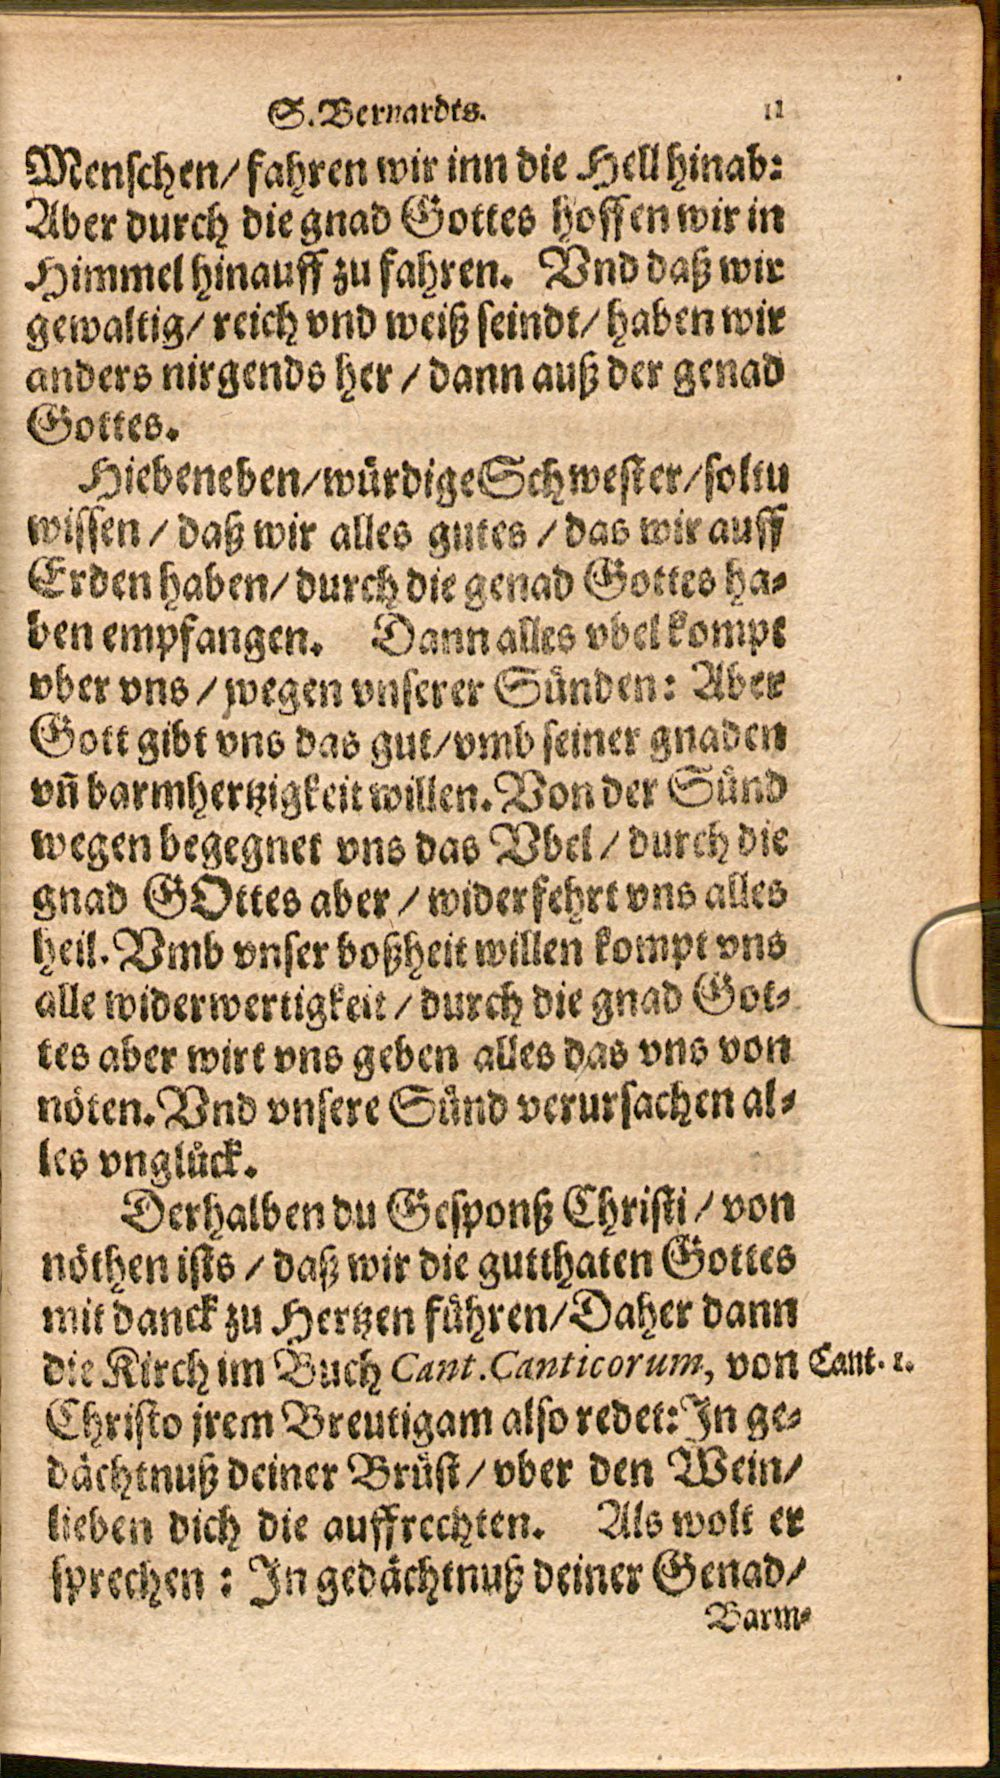 S. Bernardts. 11
Menschen/ fahren wir inn die Hell hinab:
Aber durch die gnad Gottes hoffen wir in
Himmel hinauff zu fahren. Vnd daß wir
gewaltig/ reich vnd weiß seindt/ haben wir
anders nirgends her / dann auß der genad
Gottes.
Hiebeneben/ würdige Schwester/ soltu
wissen / daß wir alles gutes / das wir auff
Erden haben/ durch die genad Gottes ha-
ben empfangen. Dann alles vbel kompt
vber vns / wegen vnserer Sünden: Aber
Gott gibt vns das gut/ vmb seiner gnaden
vñ barmhertzigkeit willen. Von der Sünd
wegen begegnet vns das Vbel / durch die
gnad GOttes aber / widerfehrt vns alles
heil. Vmb vnser boßheit willen kompt vns
alle widerwertigkeit / durch die gnad Got-
tes aber wirt vns geben alles das vns von
nöten. Vnd vnsere Sünd verursachen al-
les vnglück.
Derhalben du Gesponß Christi / von
nöthen ists / daß wir die gutthaten Gottes
mit danck zu Hertzen führen/ Daher dann
die Kirch im Buch Cant. Canticorum, von Cant. 1.
Christo jrem Breutigam also redet: In ge-
dächtnuß deiner Brüst / vber den Wein/
lieben dich die auffrechten. Als wolt er
sprechen : In gedächtnuß deiner Genad/
Barm-